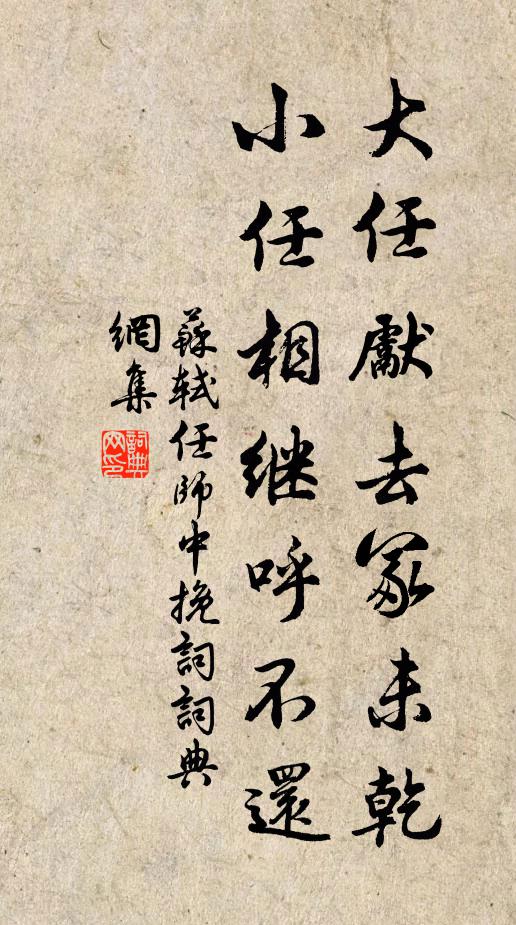 大任獻去冢未乾
小任相继呼不還
蘇軾任師中挽詞詞典
網集
詞典
网印